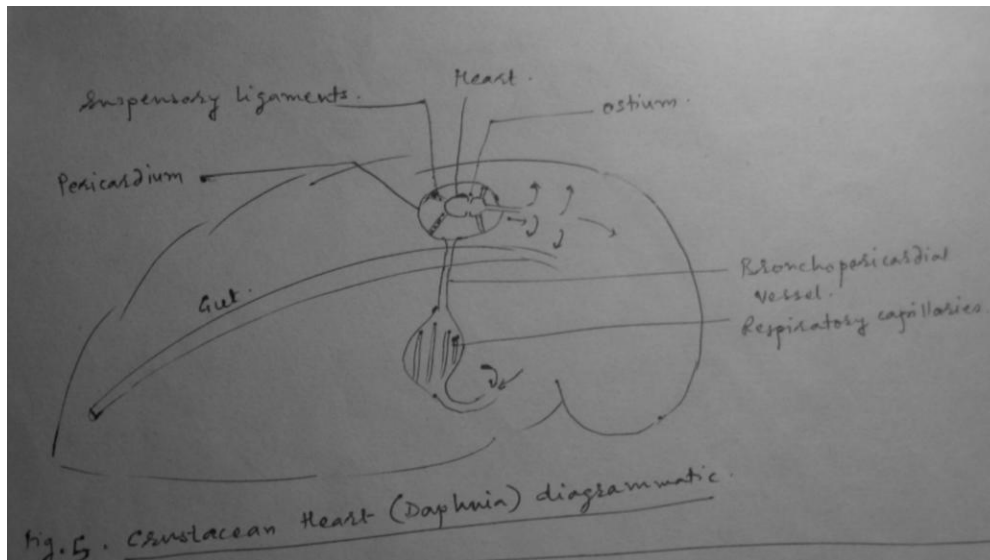 Heart.
Suspensory ligaments.
ostium.
Pericardium
Gut.
Bronchopericardial
vessel.
Respiratory capillaries.
Fig. 5. Crustacean Heart (Daphnia) diagrammatic.